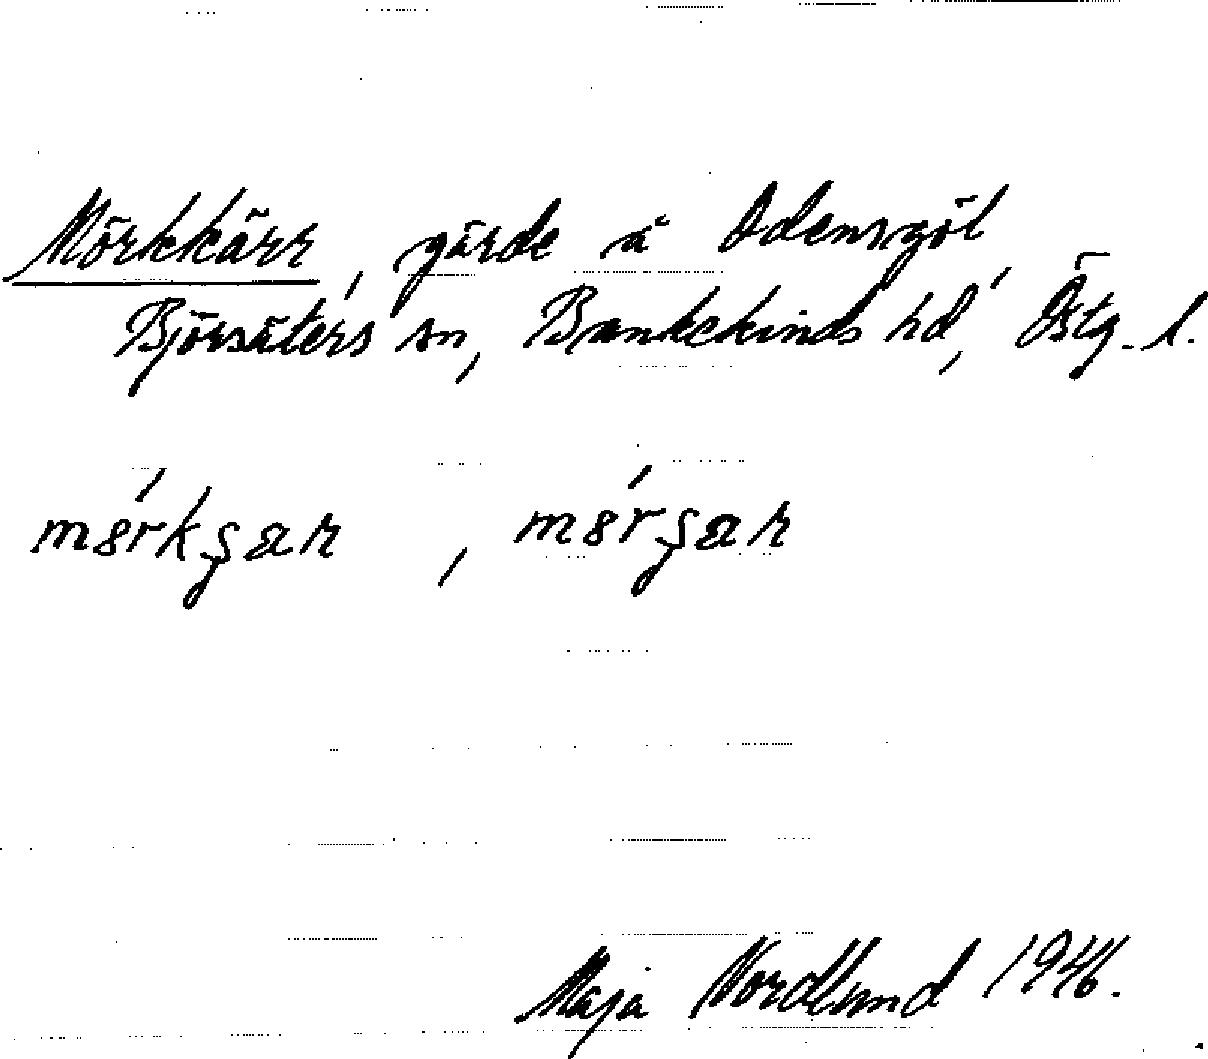 Mörkkärr, gärde å Odensgöl,
Björsäters sn, Bankekinds hd, Östg. l.
Maja Nordlund 1946.